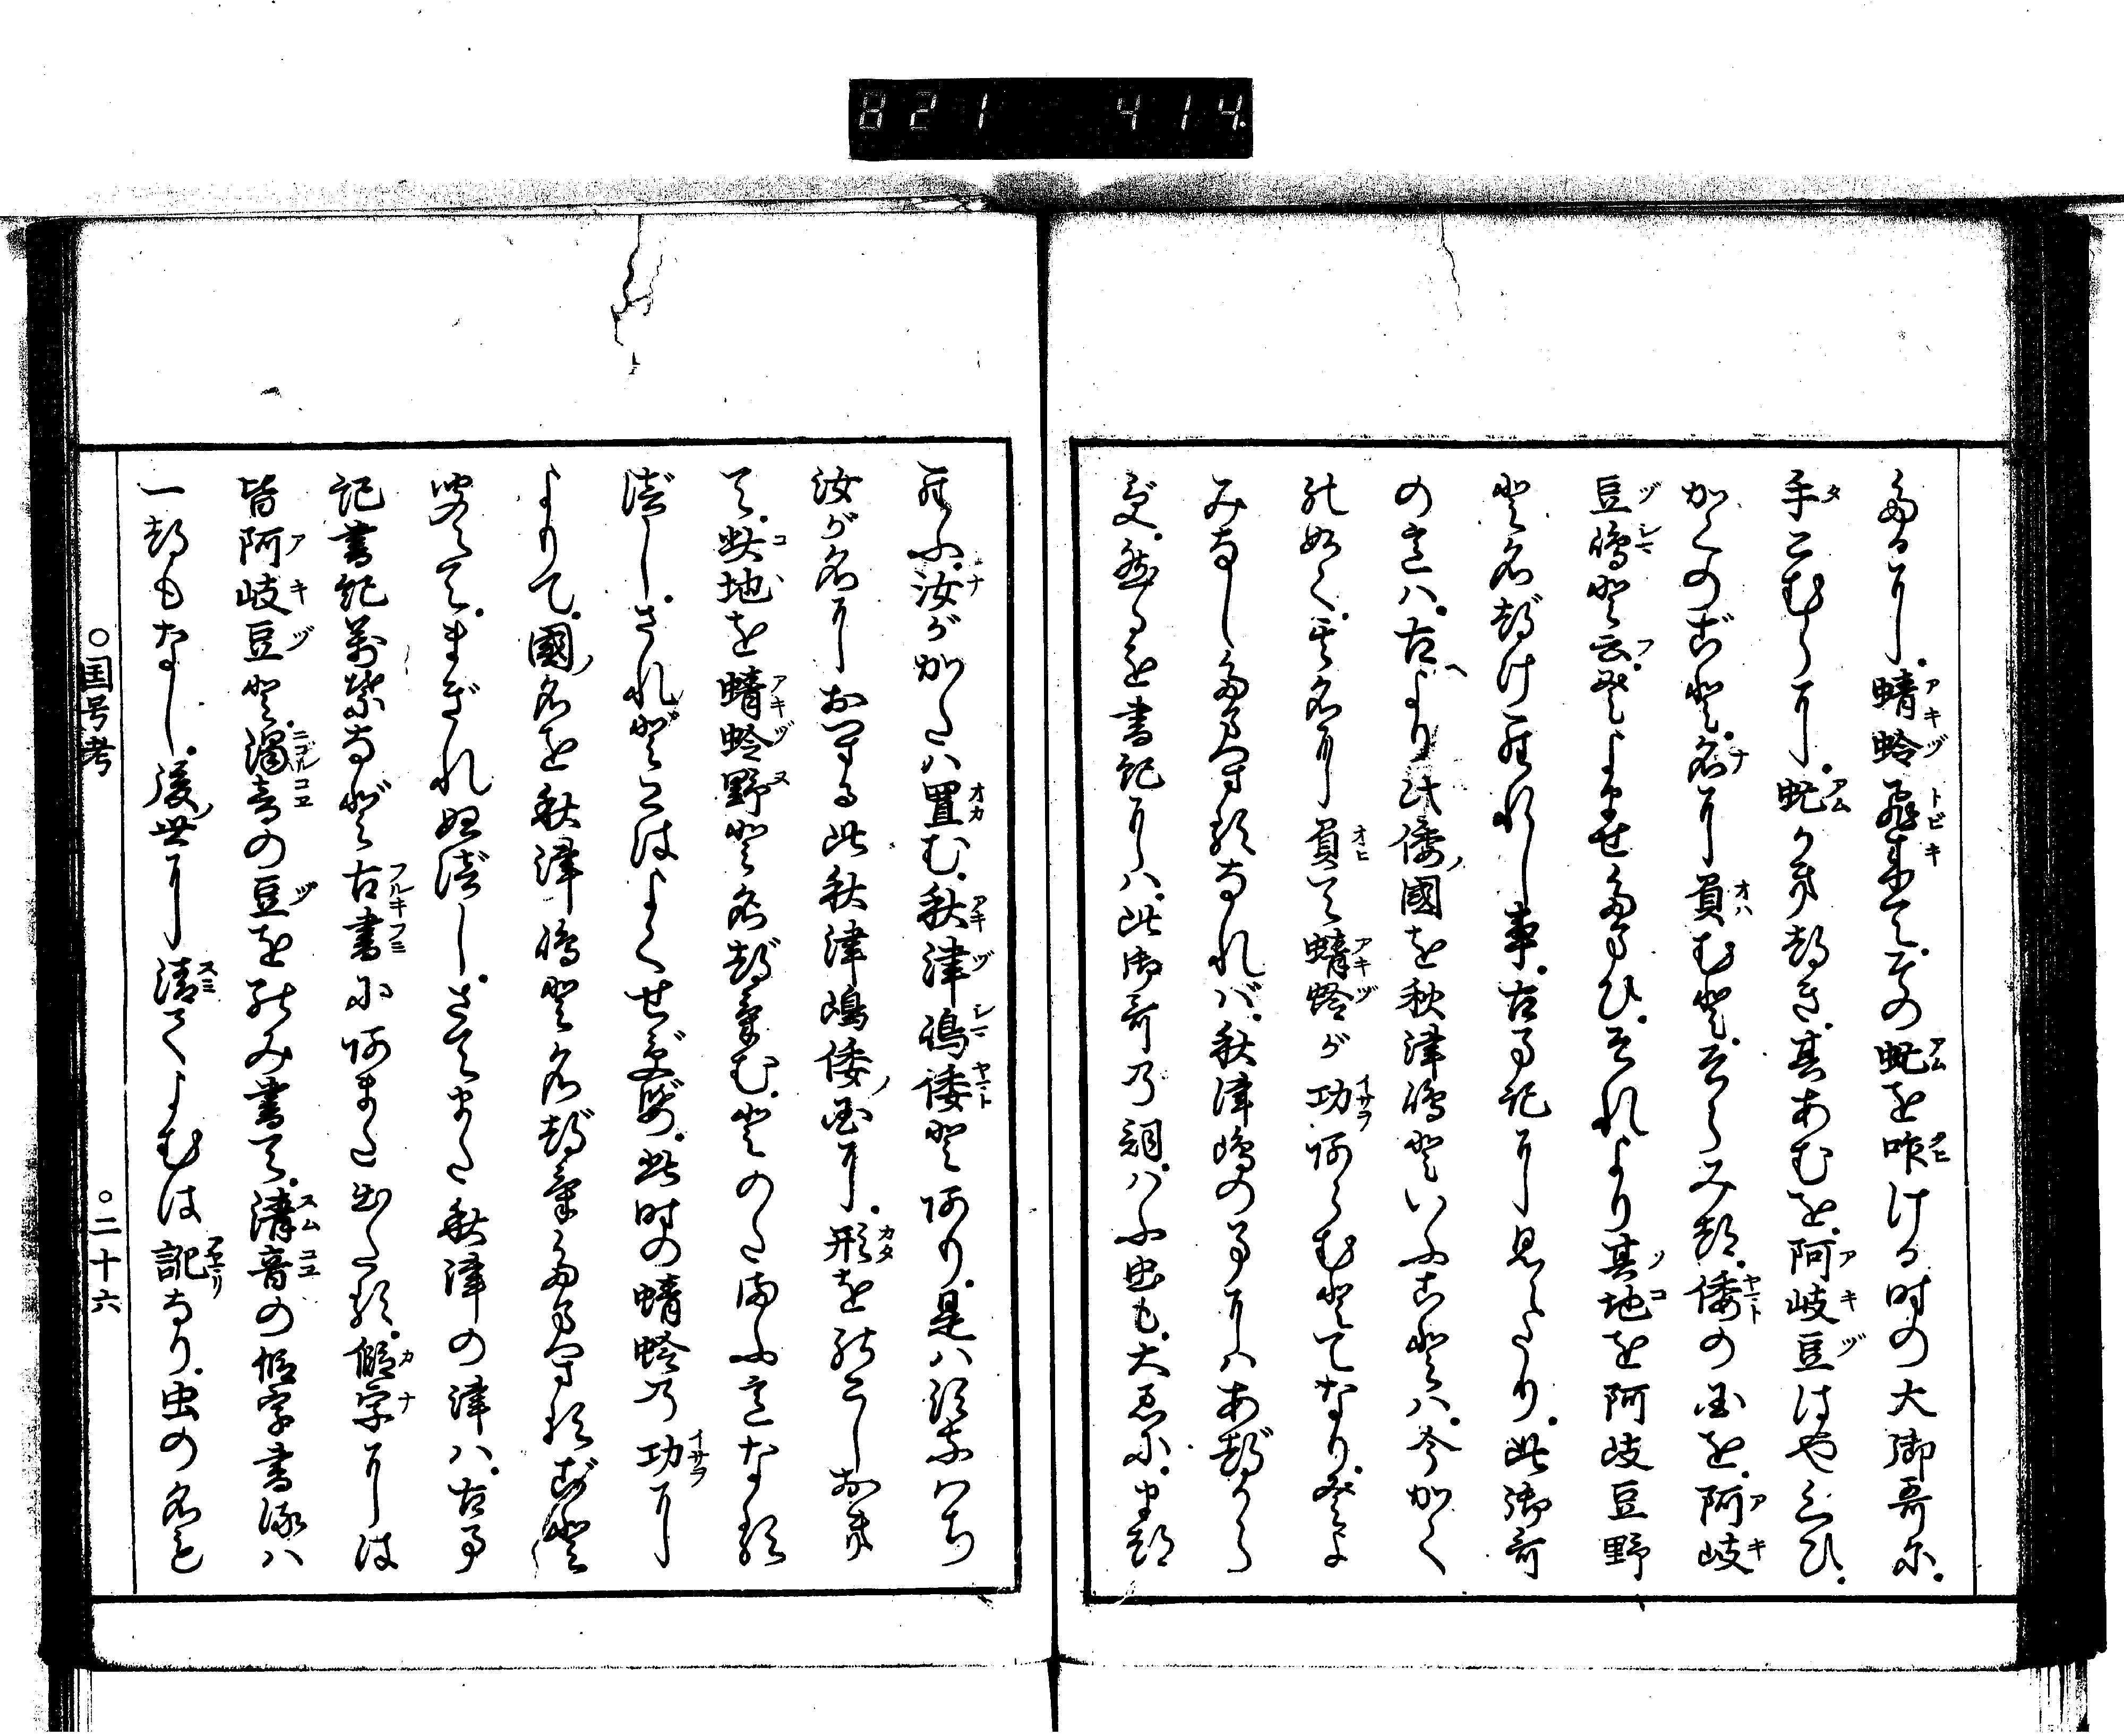 たるに。蜻蛉飛来て。その虻を咋ける時の大御哥に。
手こむらに。虻かきつき。其あむを。阿岐豆はやくひ。
かくのごと。名に負むと。そらみつ。倭の国を。阿岐
豆嶋と云。とよませたまひ。それより其地を阿岐豆野
と名づけられし事。古事記に見えたり。此御哥
の意ハ。古へより此倭ノ國を秋津嶋といふことハ。今かく
の如く。其名に負て蜻蛉が功あらむとてなり。とよ
みなしたまへるなれバ。秋津嶋の事にハあづから
ず。然るを書紀にハ。此御哥の詞。はふ虫も。大君に。まつ
らふ。汝がかたハ置む。秋津嶋倭とあり。是ハすなハち
汝が名におへる此秋津嶋倭ノ国に。形をのこしおき
て。此地を蜻蛉野と名づけむ。とのたまふ意なる
べし。されどこはよくせずば。此時の蜻蛉の功に
よりて。國ノ名を秋津嶋と名づけたまへるごと
聞えて。まぎれぬべし。さてまた秋津の津ハ。古事
記書紀萬葉など。古書にあまた出たる。假字には
皆阿岐豆と。濁音の豆をのみ書て。清音の假字書るハ
一つもなし。後ノ世に清てよむは訛なり。虫の名も
○国号考 ○二十六
821 414